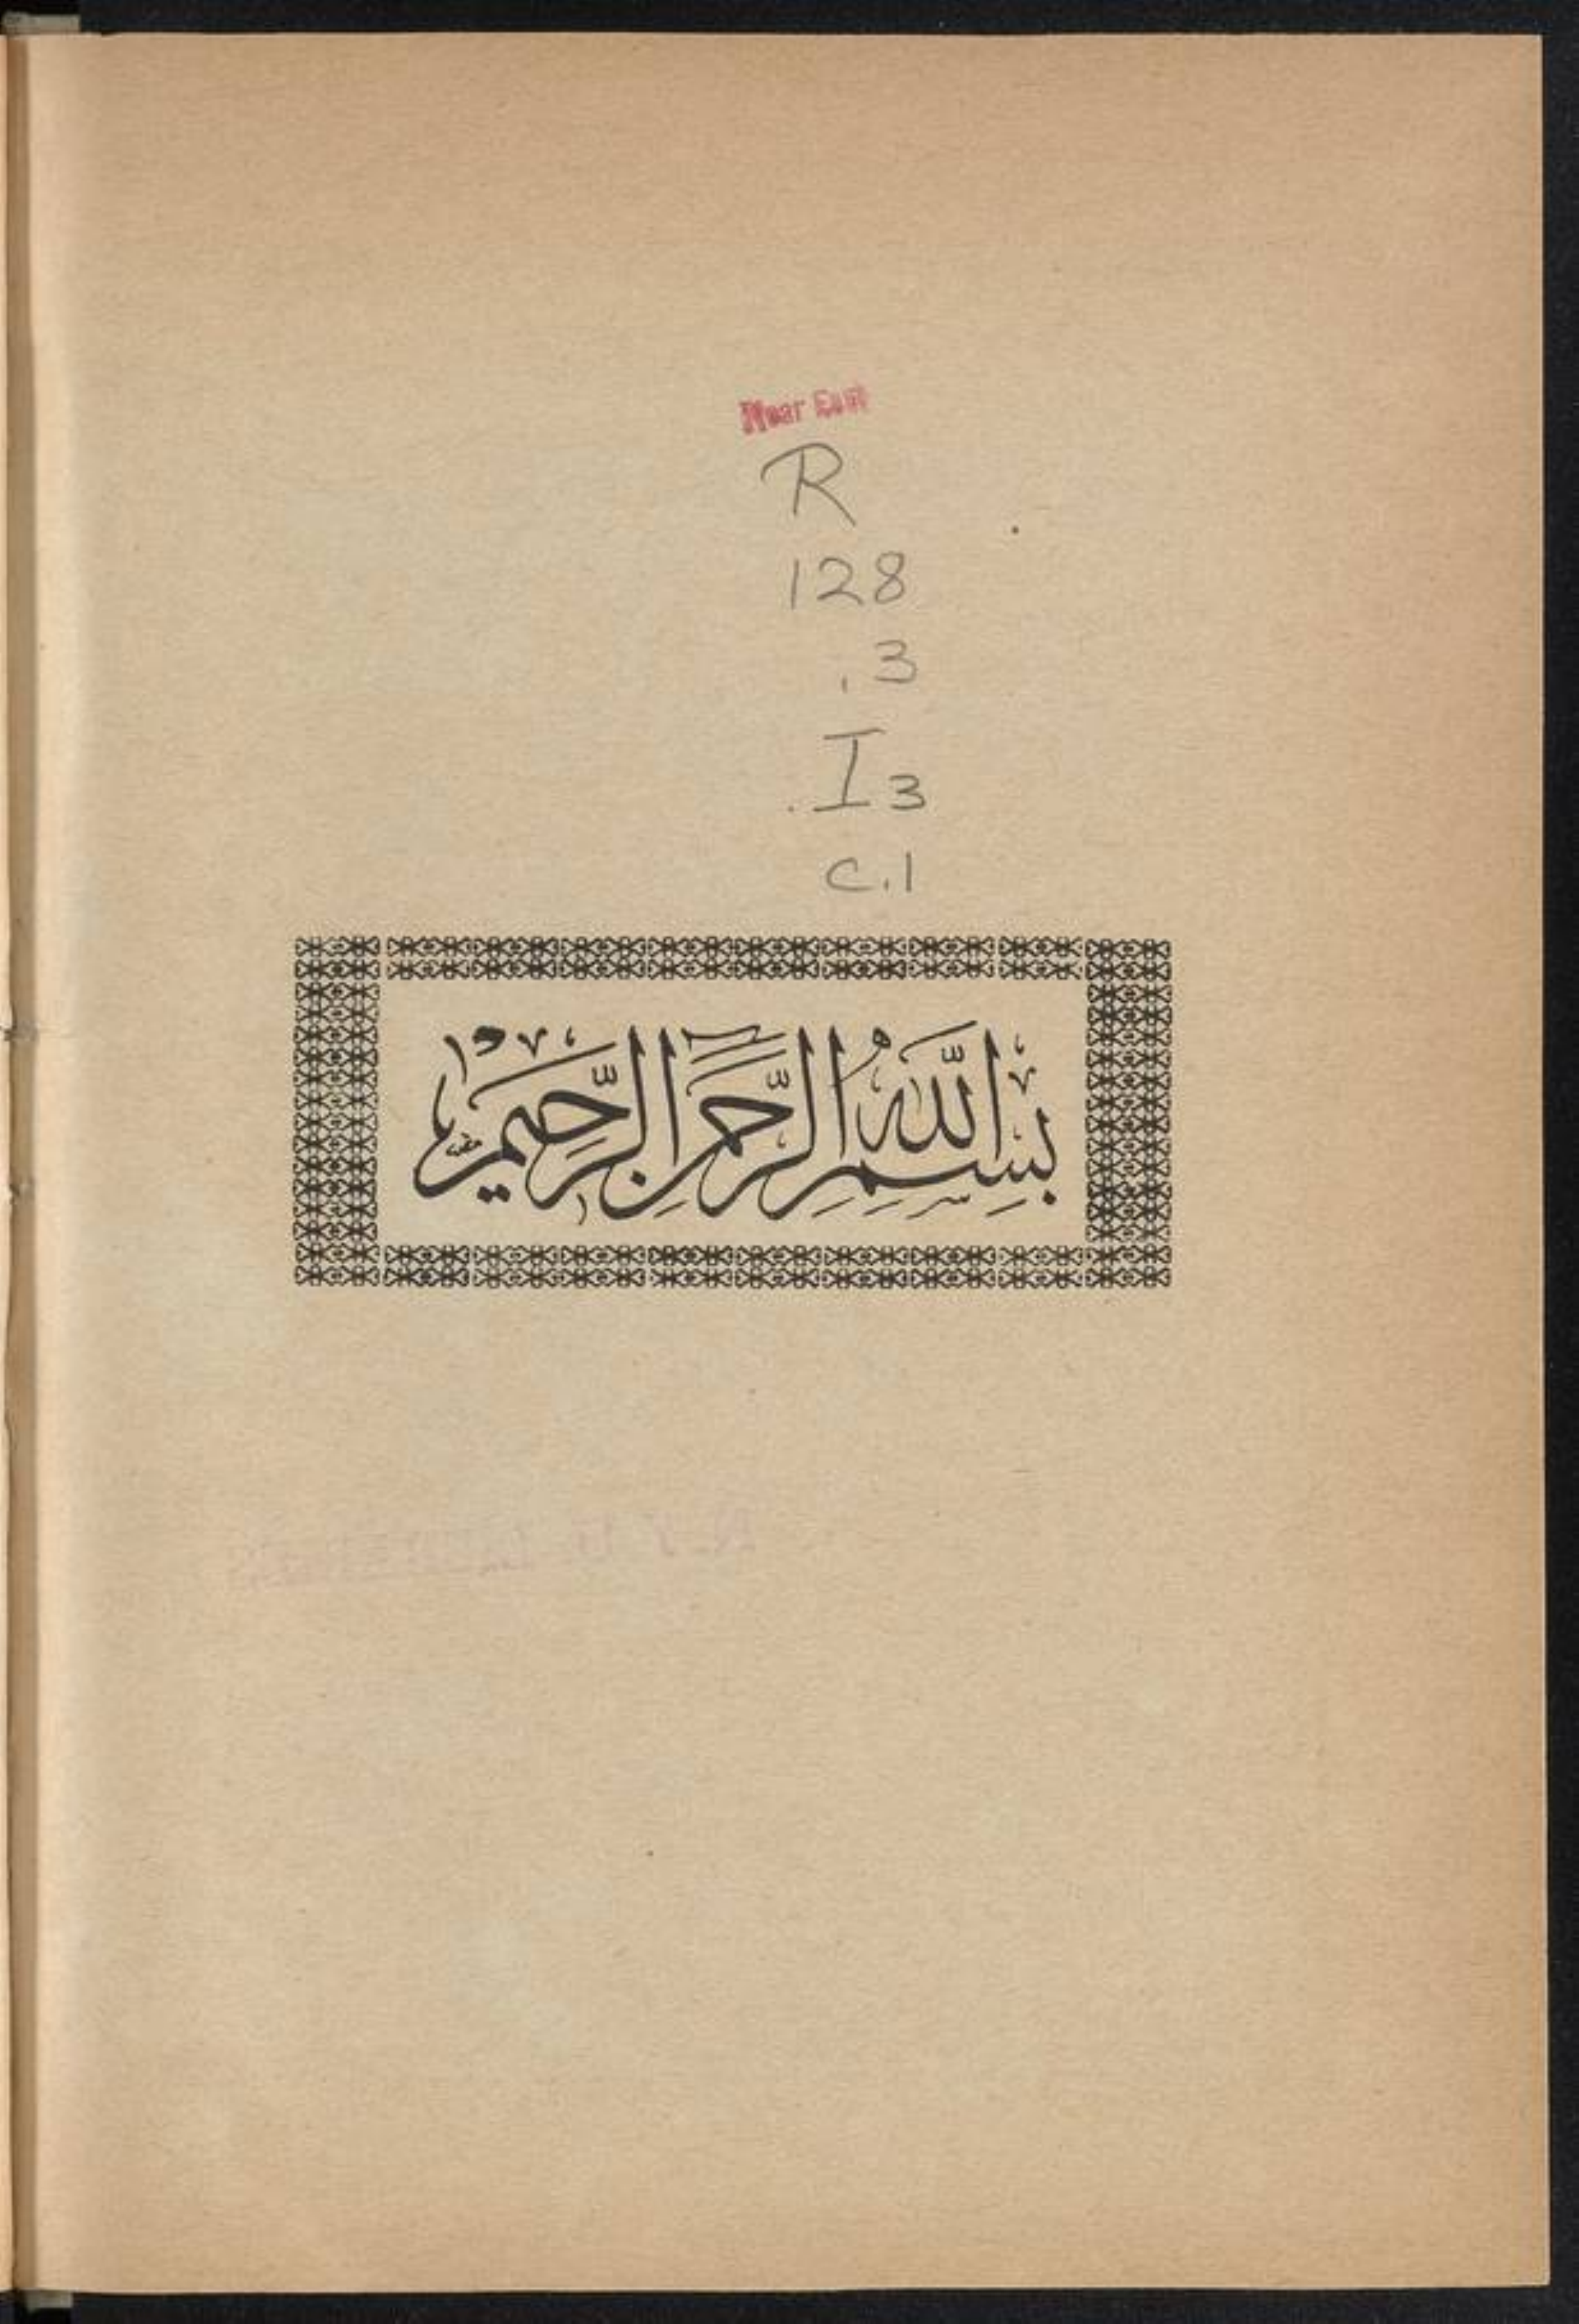 Near East
R
128
.3
I3
c.1
بسم الله الرحمن الرحيم